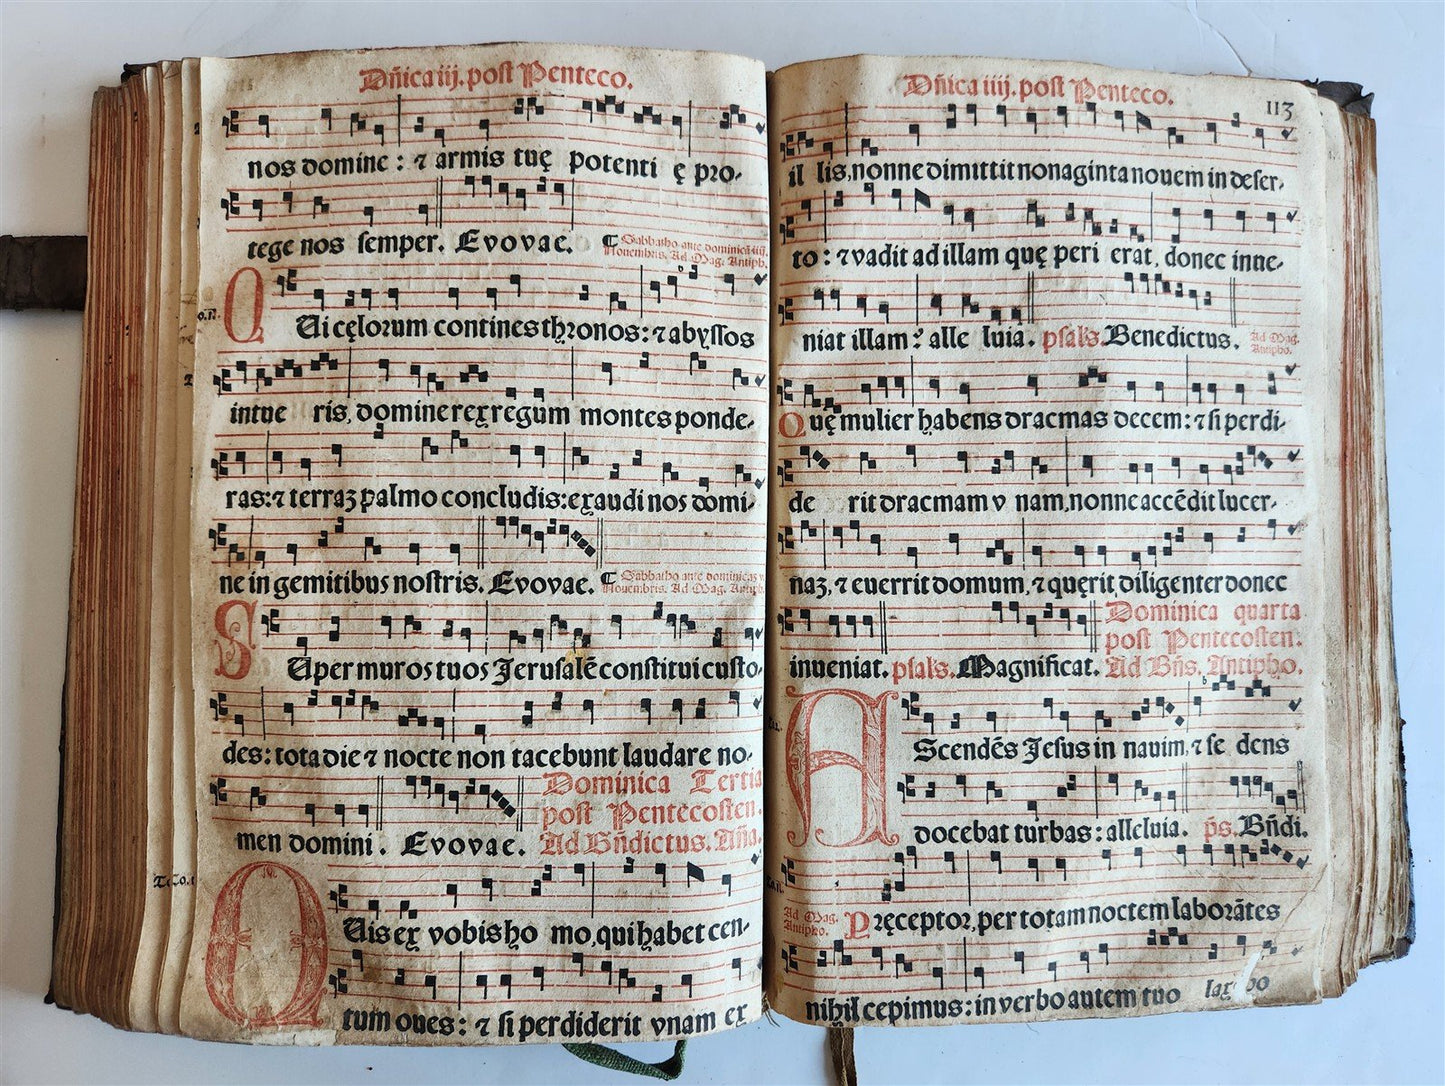 Dñica iij. post Penteco.
nos domine : ⁊ armis tuę potenti ę pro-
tege nos semper. Evovae. ¶ Sabbatho ante dominicã iiij.
Nouembris. Ad Mag. Antiph.
QUi cęlorum contines thronos : ⁊ abyssos
intue ris, domine rex regum montes ponde-
ras: ⁊ terraʒ palmo concludis: exaudi nos domi-
ne in gemitibus nostris. Evovae. ¶ Sabbatho ante dominicaʒ v.
Nouembris. Ad Mag. Antiph.
SUper muros tuos Jerusalẽ constitui custo-
des: tota die ⁊ nocte non tacebunt laudare no-
men domini . Evovae. Dominica Tertia
post Pentecosten.
Ad Bñdictus. Aña.
QUis ex vobis ho mo, qui habet cen-
tum oues : ⁊ si perdiderit vnam ex
Dñica iiij. post Penteco.
113
il lis, nonne dimittit nonaginta nouem in deser-
to : ⁊ vadit ad illam quę peri erat, donec inue-
niat illam : alle luia. psal's. Benedictus. Ad Mag.
Antipho.
Quę mulier habens dracmas decem: ⁊ si perdi-
de rit dracmam v nam, nonne accẽdit lucer-
naʒ, ⁊ euerrit domum, ⁊ quęrit diligenter donec
inueniat. psal's. Magnificat. Dominica quarta
post Pentecosten.
Ad Bñs. Antipho.
AScendẽs Jesus in nauim, ⁊ se dens
docebat turbas : alleluia. p̃s. Bñdi.
Ad Mag.
Antipho. Pręceptor, per totam noctem laborãtes
nihil cepimus: in verbo autem tuo